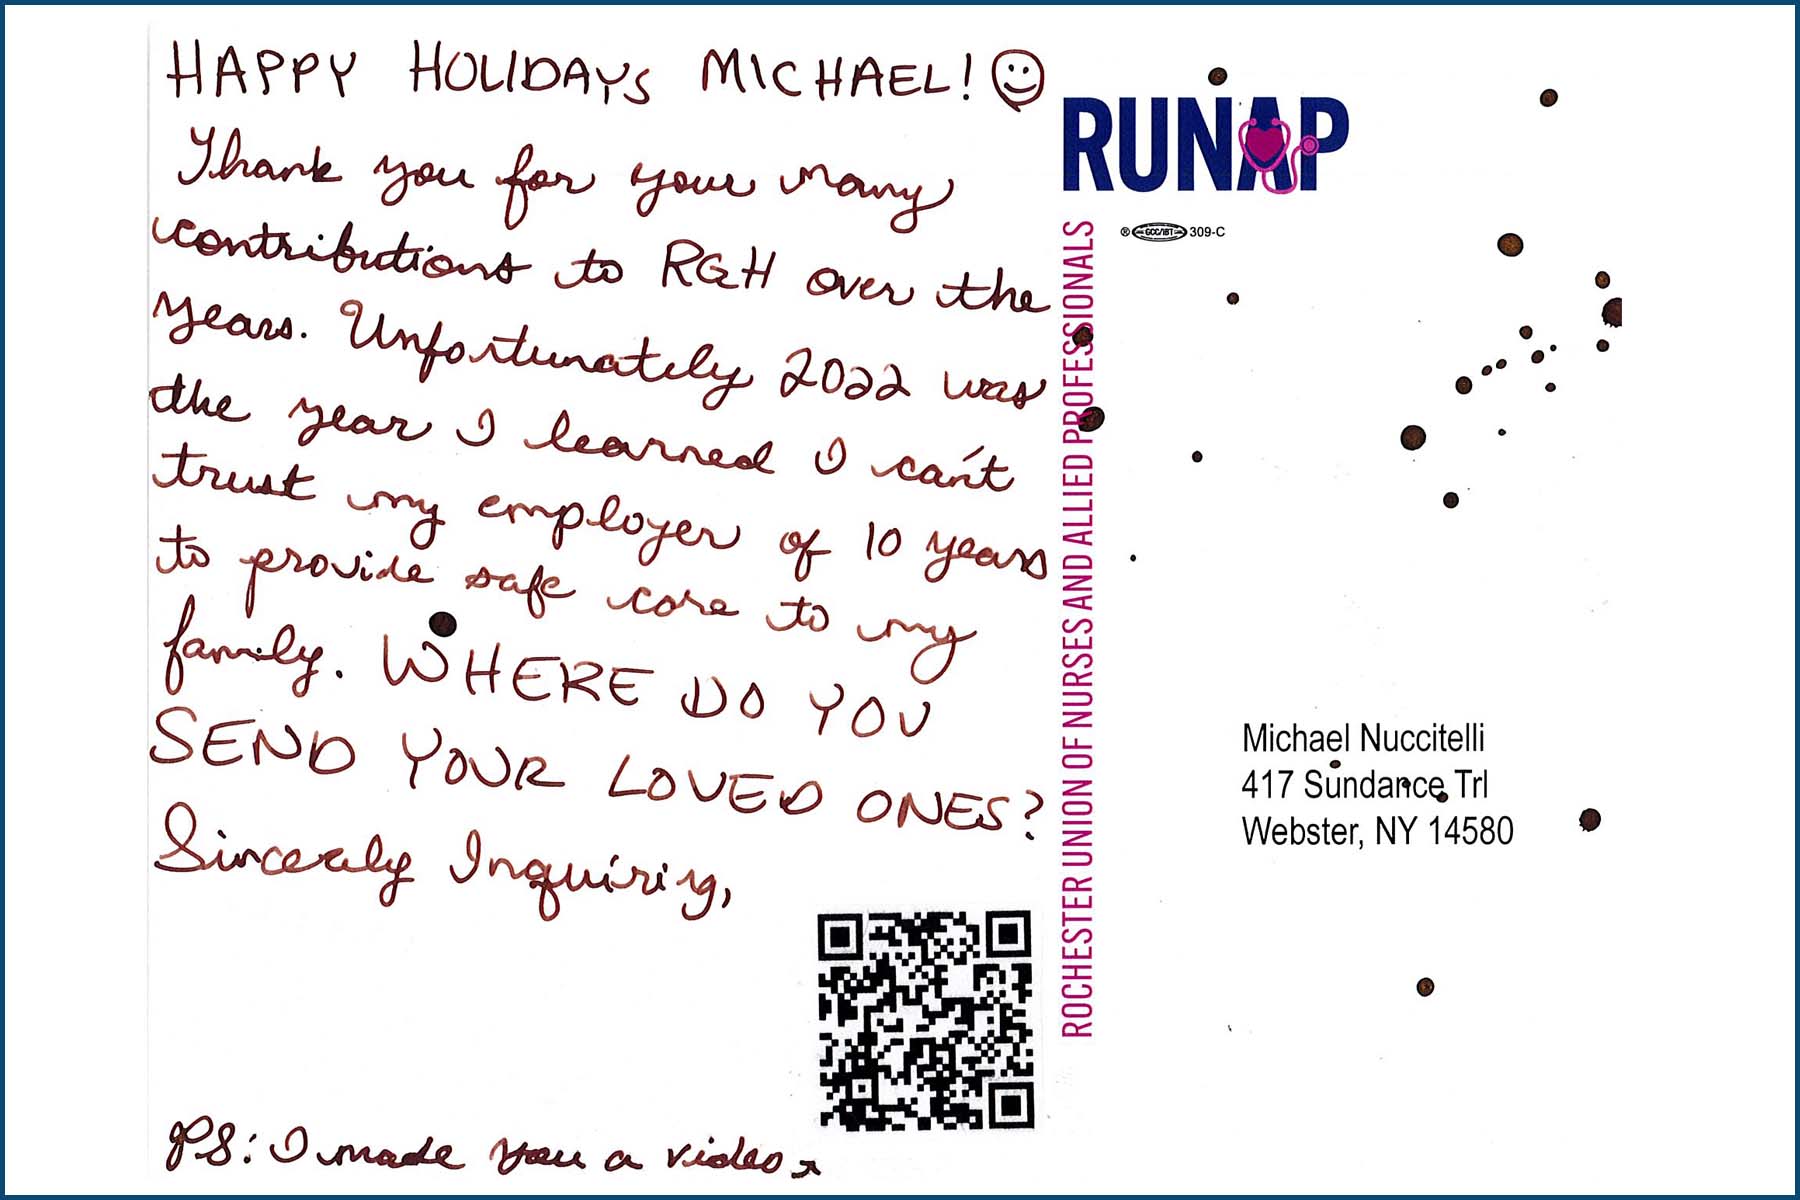 HAPPY HOLIDAYS MICHAEL!
Thank you for your many
contributions to RGH over the
years. Unfortunately 2022 was
the year I learned I can't
trust my employer of 10 years
to provide safe care to my
family. WHERE DO YOU
SEND YOUR LOVED ONES?
Sincerely Inquiring,
PS: I made you a video
RUNAP
® GCC/IBT 309-C
ROCHESTER UNION OF NURSES AND ALLIED PROFESSIONALS
Michael Nuccitelli
417 Sundance Trl
Webster, NY 14580